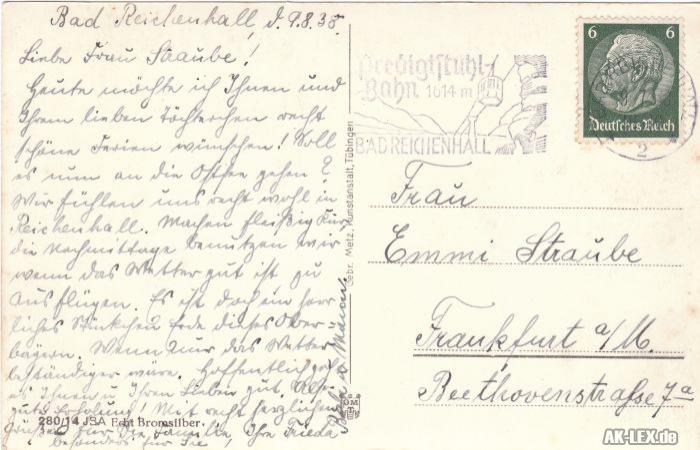 Bad Reichenhall, d. 9.8.38.
Liebe Frau Straube!
Heute möchte ich Ihnen und
Ihrem lieben Töchterchen recht
schöne Ferien wünschen! Soll
es nun an die Ostsee gehen?
Wir fühlen uns recht wohl in
Reichenhall. Machen fleißig Kur,
die Nachmittage benutzen wir
wenn das Wetter gut ist zu
Ausflügen. Es ist doch ein herr-
liches Stückchen Erde dieses Ober-
bayern. Wenn nur das Wetter
beständiger wäre. Hoffentlich geht
es Ihnen u. Ihren Lieben gut.
gute Erholung! Mit recht herzlichen
Grüßen für die Familie, Ihre Frieda
besonders für Sie,
u. Mann.
280/14 JSA Echt Bromsilber.
Gebr. Metz, Kunstanstalt, Tübingen
GMT
Predigtstuhl-
Bahn 1614 m
BAD REICHENHALL
6 6
Deutsches Reich
2
Frau
Emmi Straube
Frankfurt a/M.
Beethovenstrasse 7a
AK-LEX.de